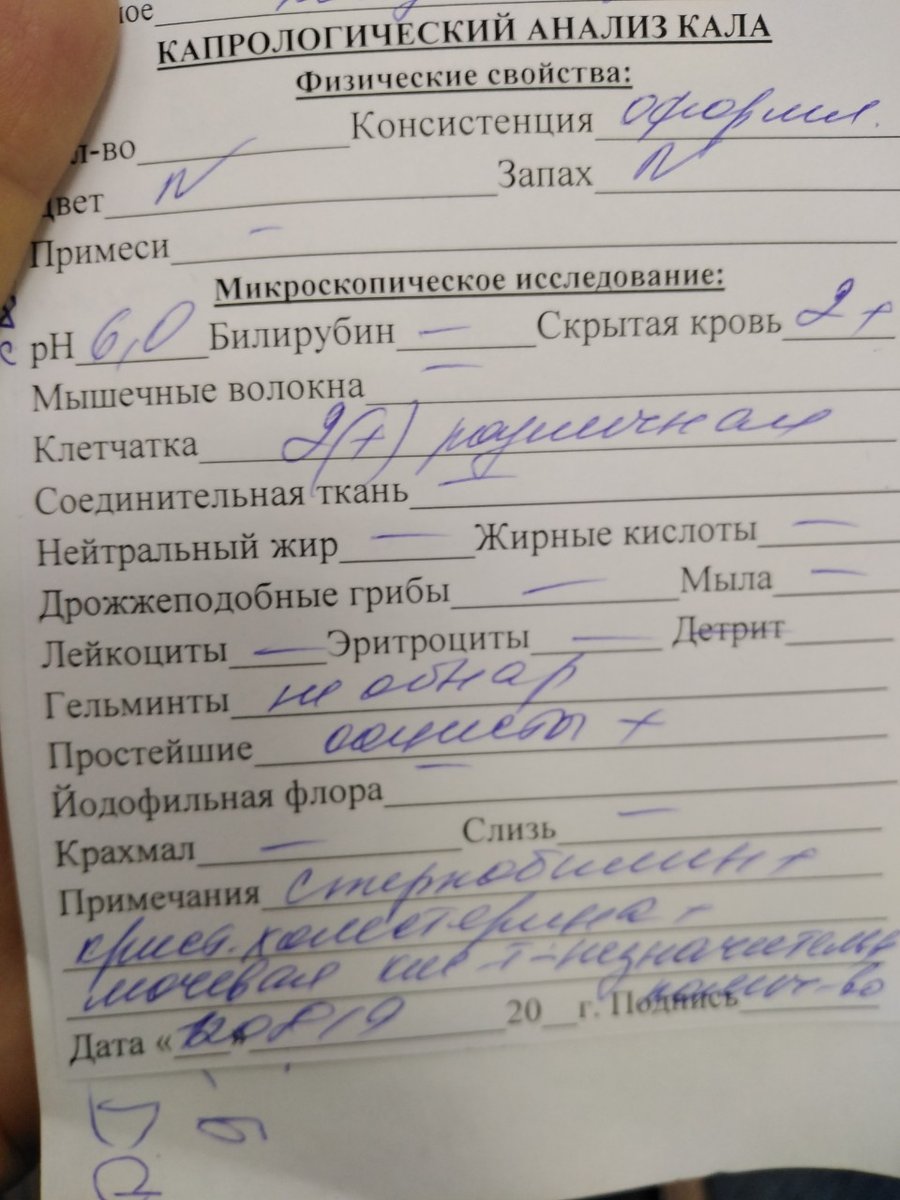 ное
КАПРОЛОГИЧЕСКИЙ АНАЛИЗ КАЛА
Физические свойства:
л-во Консистенция оформл.
цвет N Запах N
Примеси –
Микроскопическое исследование:
pH 6,0 Билирубин – Скрытая кровь 2+
Мышечные волокна –
Клетчатка 2(+) различная
Соединительная ткань –
Нейтральный жир – Жирные кислоты –
Дрожжеподобные грибы – Мыла –
Лейкоциты – Эритроциты – Детрит
Гельминты не обнар
Простейшие ооцисты +
Йодофильная флора –
Крахмал – Слизь –
Примечания Стеркобилин +
крист. холестерина +
мочевая кис-т-незначительн
колич-во
Дата « » 20 г. Подпись